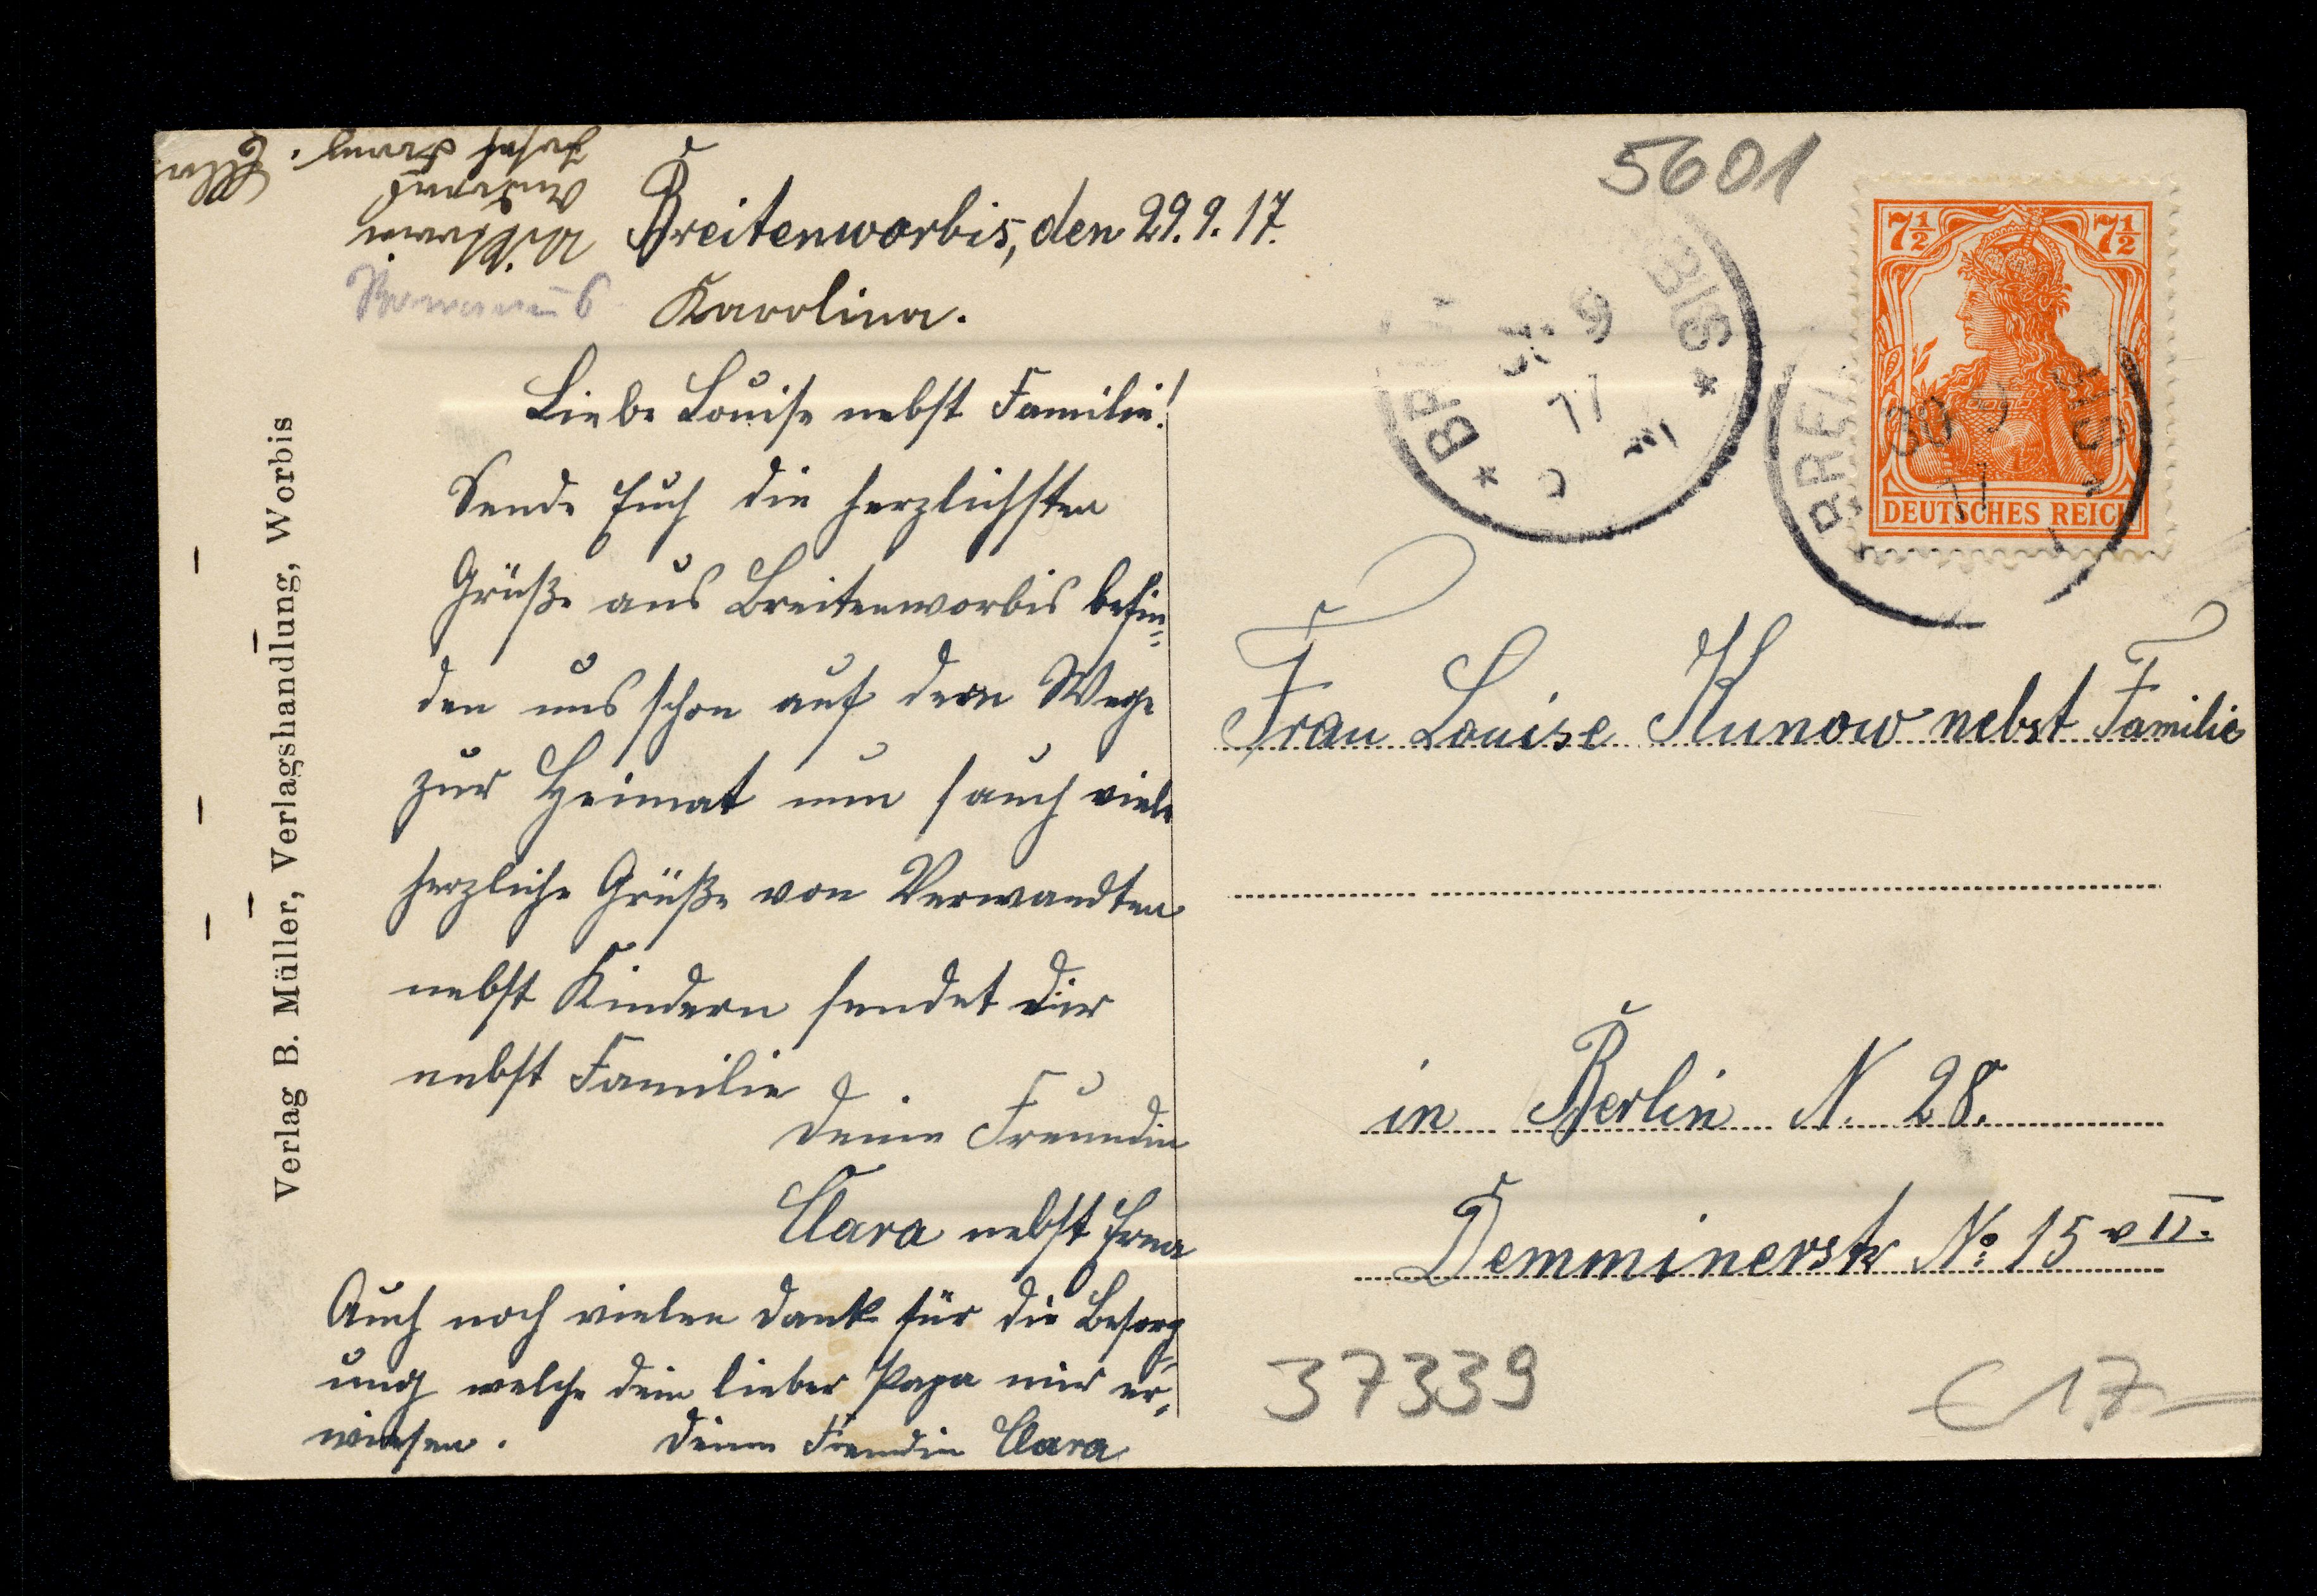 5601
Breitenworbis, den 29.9.17.
Karolina.
Liebe Louise nebst Familie!
Sende Euch die herzlichsten
Grüße aus Breitenworbis befin-
den uns schon auf dem Wege
zur Heimat nun auch viele
herzliche Grüße von Verwandten
nebst Kindern sendet dir
nebst Familie
deine Freundin
Clara nebst Erna
Auch noch vielen Dank für die Besorg-
ung welche dein lieber Papa mir er-
wiesen. Deine Freundin Clara
Verlag B. Müller, Verlagshandlung, Worbis
7½ 7½
DEUTSCHES REICH
BREI BIS
30 9
17
Frau Louise Kunow nebst Familie
in Berlin N. 28.
Demminerstr No 15 v II.
37339
17